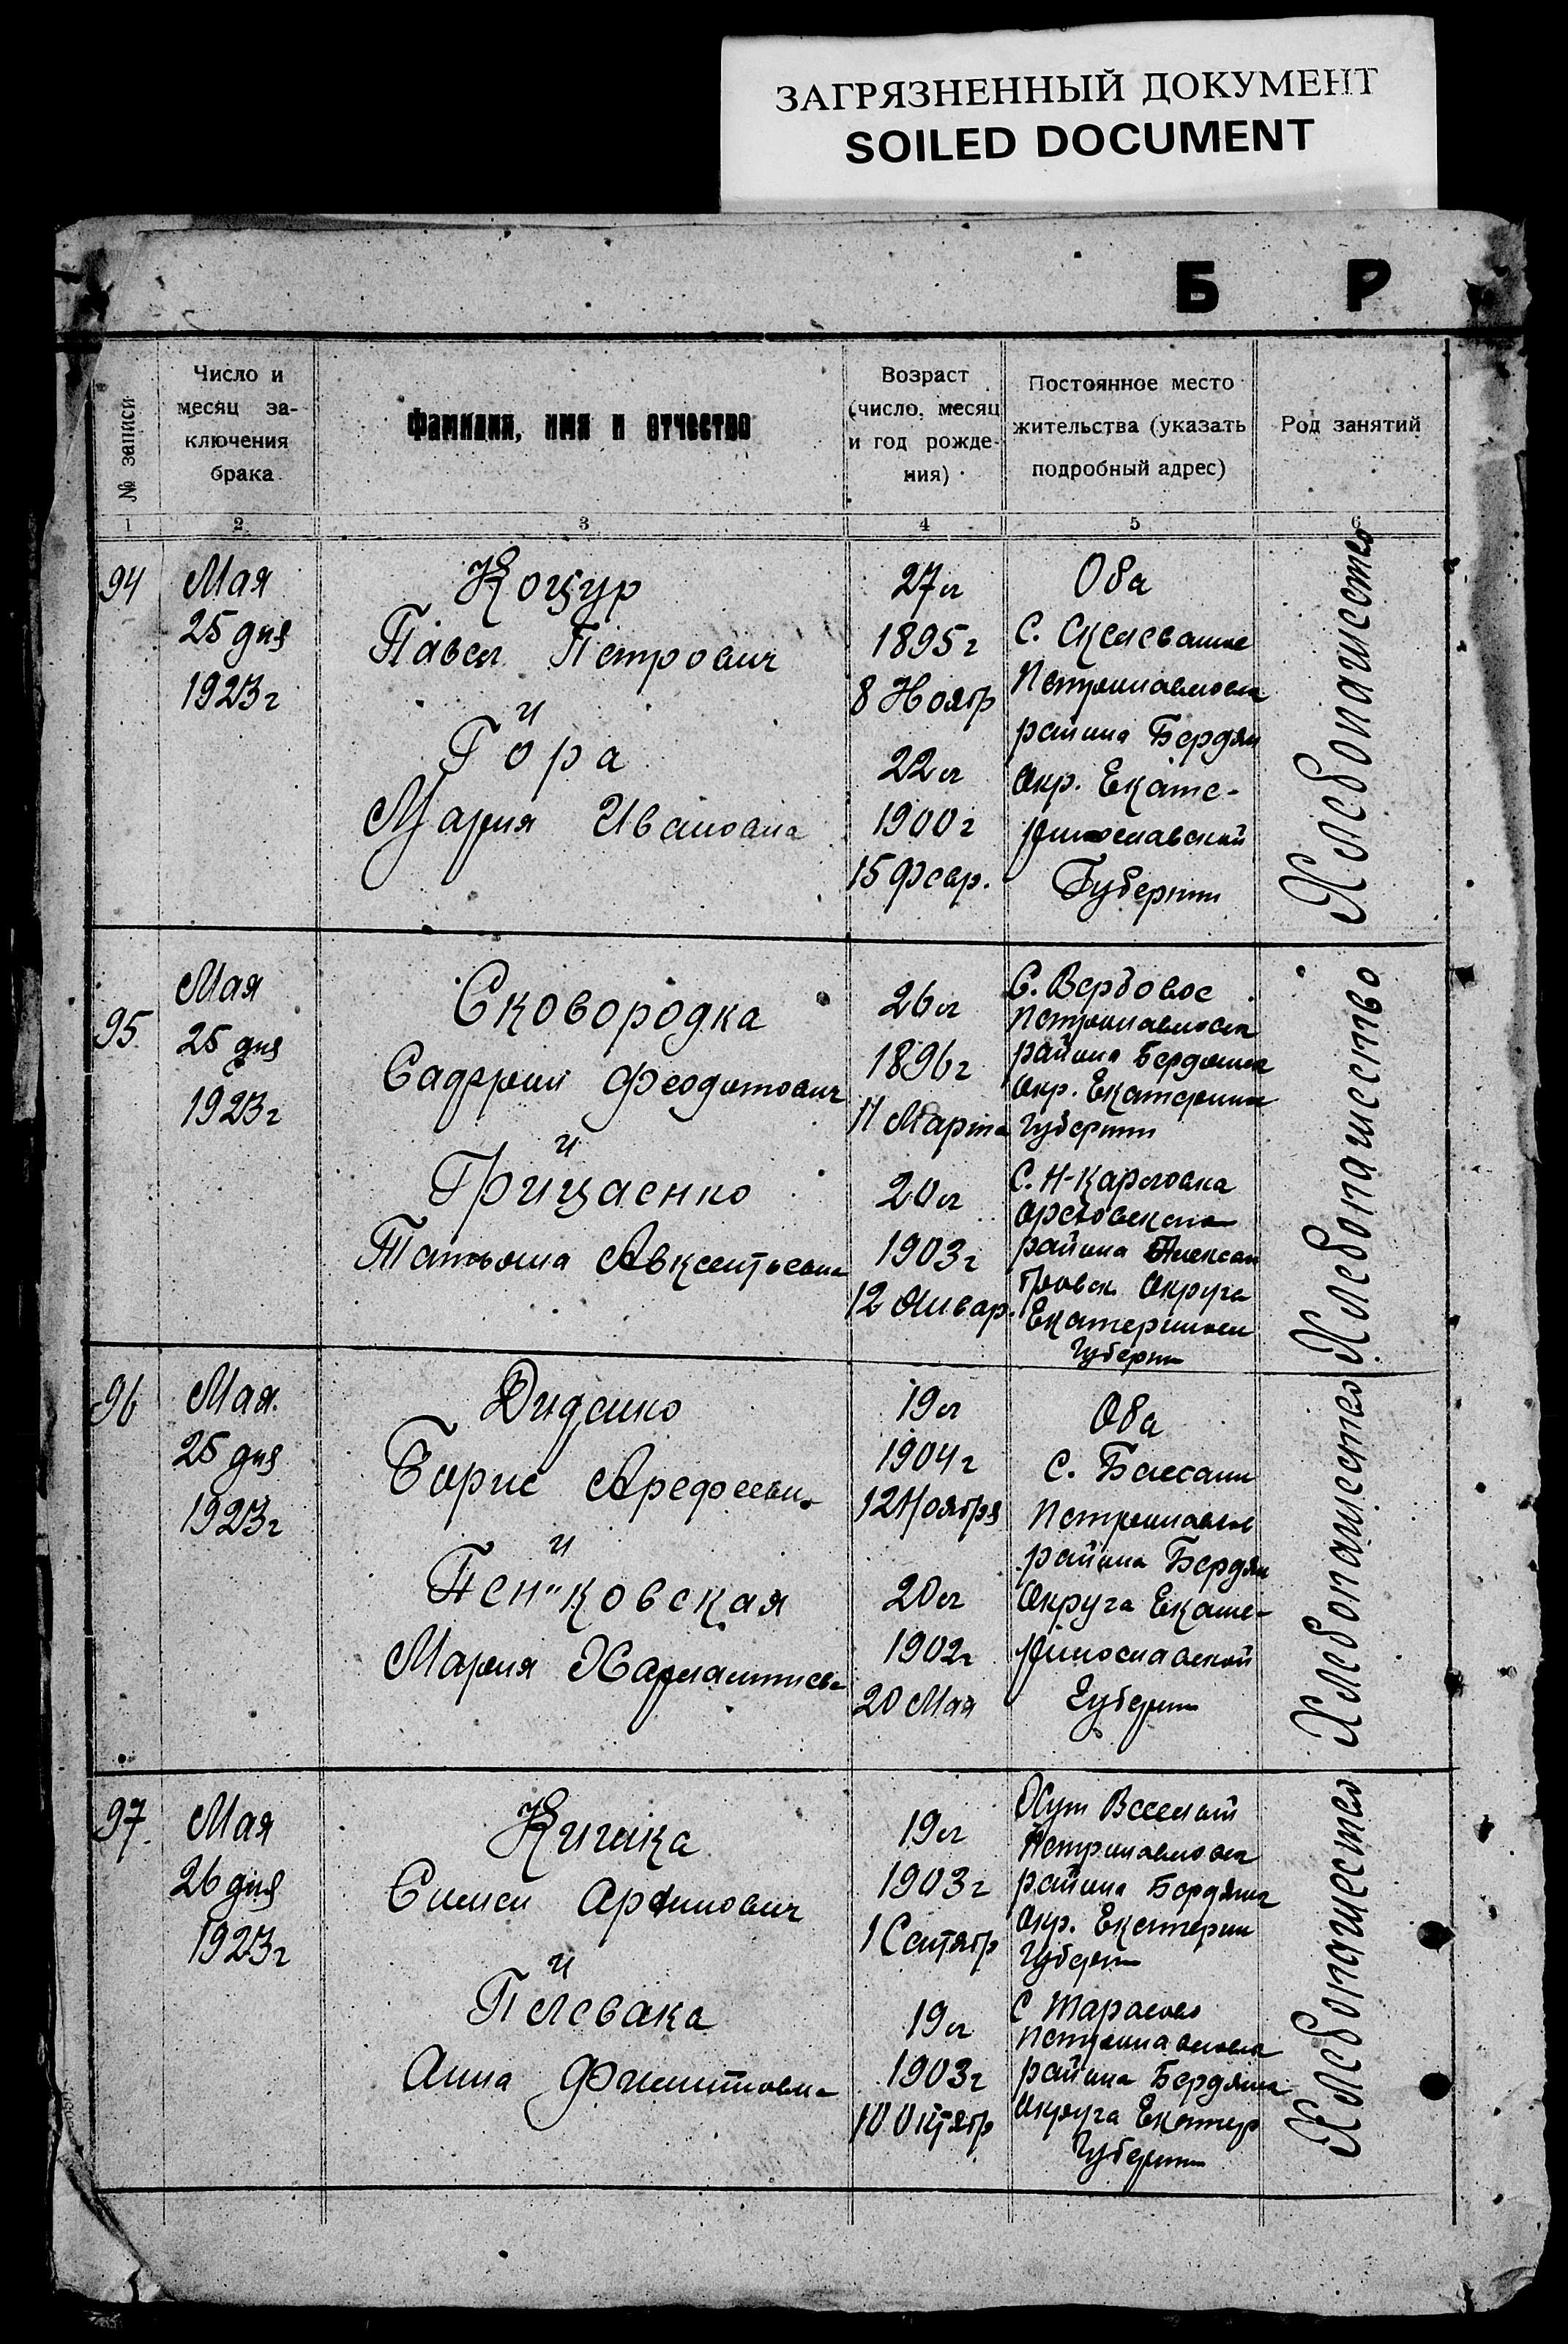 ЗАГРЯЗНЕННЫЙ ДОКУМЕНТ
SOILED DOCUMENT
Б Р
№ записи
Число и
месяц за-
ключения
брака
Фамилия, имя и отчество
Возраст
(число, месяц
и год рожде-
ния)
Постоянное место
жительства (указать
подробный адрес)
Род занятий
1 2 3 4 5 6
94
Мая
25 дня
1923г
Коцур
Павел Петрович
и
Гора
Мария Ивановна
27 л
1895г
8 Ноябр
22 л
1900г
15 Февр.
Оба
С.
района Бердян
Окр. Екате-
ринославской
Губернии
Хлебопашество
95
Мая
25 дня
1923г
Сковородка
Феодотович
и
Грицаенко
Татьяна Авксентьевна
26 л
1896г
11 Марта
20 л
1903г
12 Январ.
С. Вербовое
района Бердянск
Окр. Екатерин
Губернии
С. Н-Карловка
Ореховск
района Алексан
дровск. Округа
Екатериносл
Губерн
Хлебопашество
96
Мая
25 дня
1923г
Диденко
Борис Арефеевич
и
Пен"ковская
Мария
19 л
1904г
12 Ноября
20 л
1902г
20 Мая
Оба
с.
района Бердян
Округа Екате-
ринославской
Губерн
Хлебопашество
97
Мая
26 дня
1923г
Семен
и
Плевака
Анна
19 л
1903г
1 Сентябр
19 л
1903г
10 Октябр
Хут
района Бердянс
Окр. Екатерин
Губерн
С
района Бердянск
Округа Екатер
Губерн
Хлебопашество